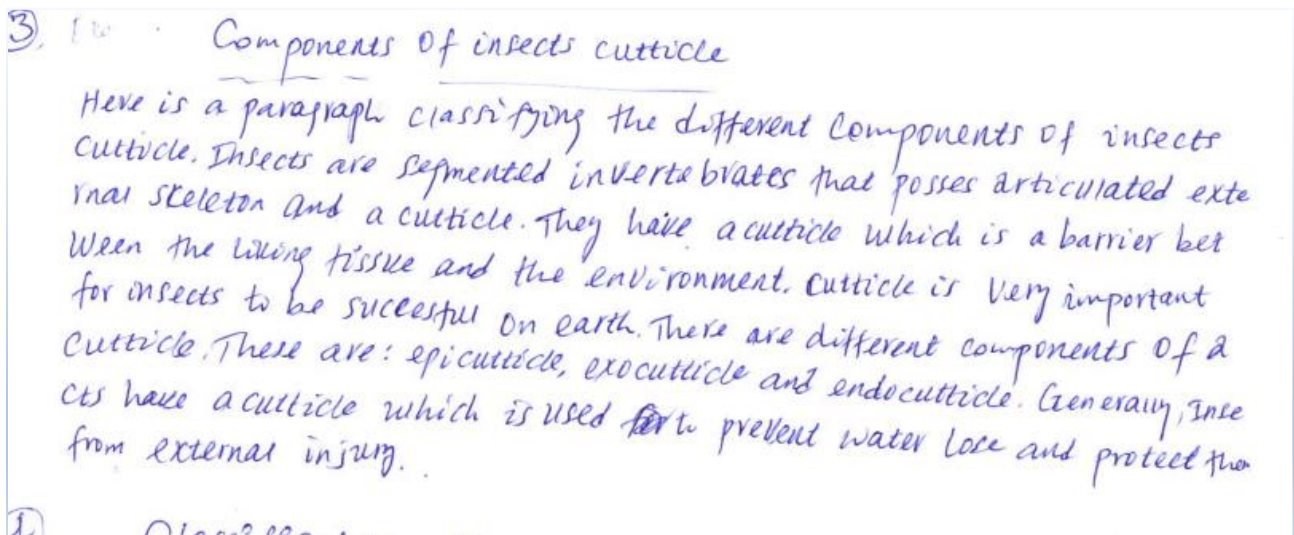 3.
Components Of insects cutticle
Here is a paragraph classifying the different Components of insects
Cutticle. Insects are segmented invertebrates that posses articulated exte
rnal skeleton and a cutticle. They have a cutticle which is a barrier bet
ween the living tissue and the environment. cutticle is very important
for insects to be succesful on earth. There are different components of a
cutticle. These are: epicutticle, exocutticle and endocutticle. Generally, Inse
cts have a cutticle which is used to prevent water lose and protect them
from external injury.
1.